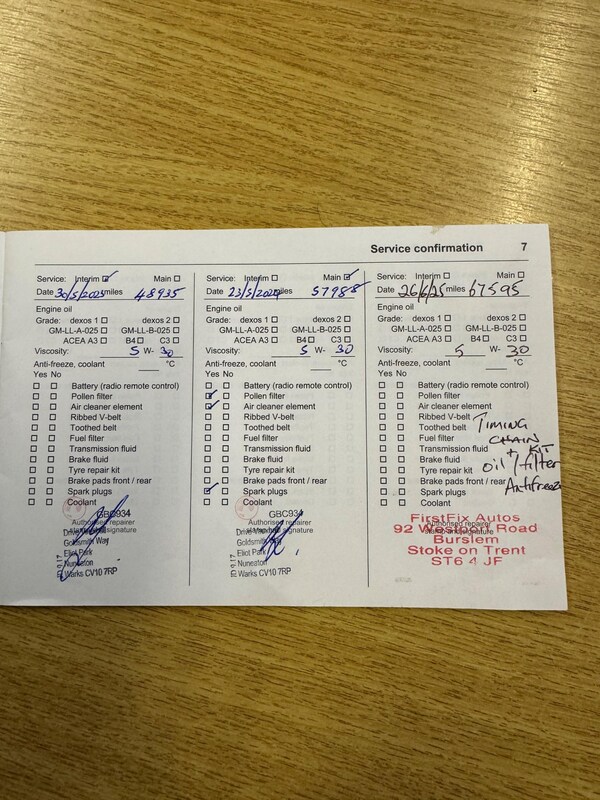 Service confirmation 7
Service: Interim Main
Date 30/5/2023 miles 48935
Engine oil
Grade: dexos 1 dexos 2
GM-LL-A-025 GM-LL-B-025
ACEA A3 B4 C3
Viscosity: 5 W- 30
Anti-freeze, coolant °C
Yes No
Battery (radio remote control)
Pollen filter
Air cleaner element
Ribbed V-belt
Toothed belt
Fuel filter
Transmission fluid
Brake fluid
Tyre repair kit
Brake pads front / rear
Spark plugs
Coolant
GBC934
Authorised repairer
Goldsmith Way
Eliot Park
Nuneaton
Warks CV10 7RP
Service: Interim Main
Date 23/5/2024 miles 57988
Engine oil
Grade: dexos 1 dexos 2
GM-LL-A-025 GM-LL-B-025
ACEA A3 B4 C3
Viscosity: 5 W- 30
Anti-freeze, coolant °C
Yes No
Battery (radio remote control)
Pollen filter
Air cleaner element
Ribbed V-belt
Toothed belt
Fuel filter
Transmission fluid
Brake fluid
Tyre repair kit
Brake pads front / rear
Spark plugs
Coolant
GBC934
Authorised repairer
Goldsmith Way
Eliot Park
Nuneaton
Warks CV10 7RP
Service: Interim Main
Date 26/6/25 miles 67595
Engine oil
Grade: dexos 1 dexos 2
GM-LL-A-025 GM-LL-B-025
ACEA A3 B4 C3
Viscosity: 5 W- 30
Anti-freeze, coolant °C
Yes No
Battery (radio remote control)
Pollen filter
Air cleaner element
Ribbed V-belt
Toothed belt TIMING
Fuel filter CHAIN
Transmission fluid + KIT
Brake fluid oil/filter
Tyre repair kit
Brake pads front / rear Antifreeze
Spark plugs
Coolant
FirstFix Autos
Authorised repairer
92 Westport Road
Burslem
Stoke on Trent
ST6 4 JF